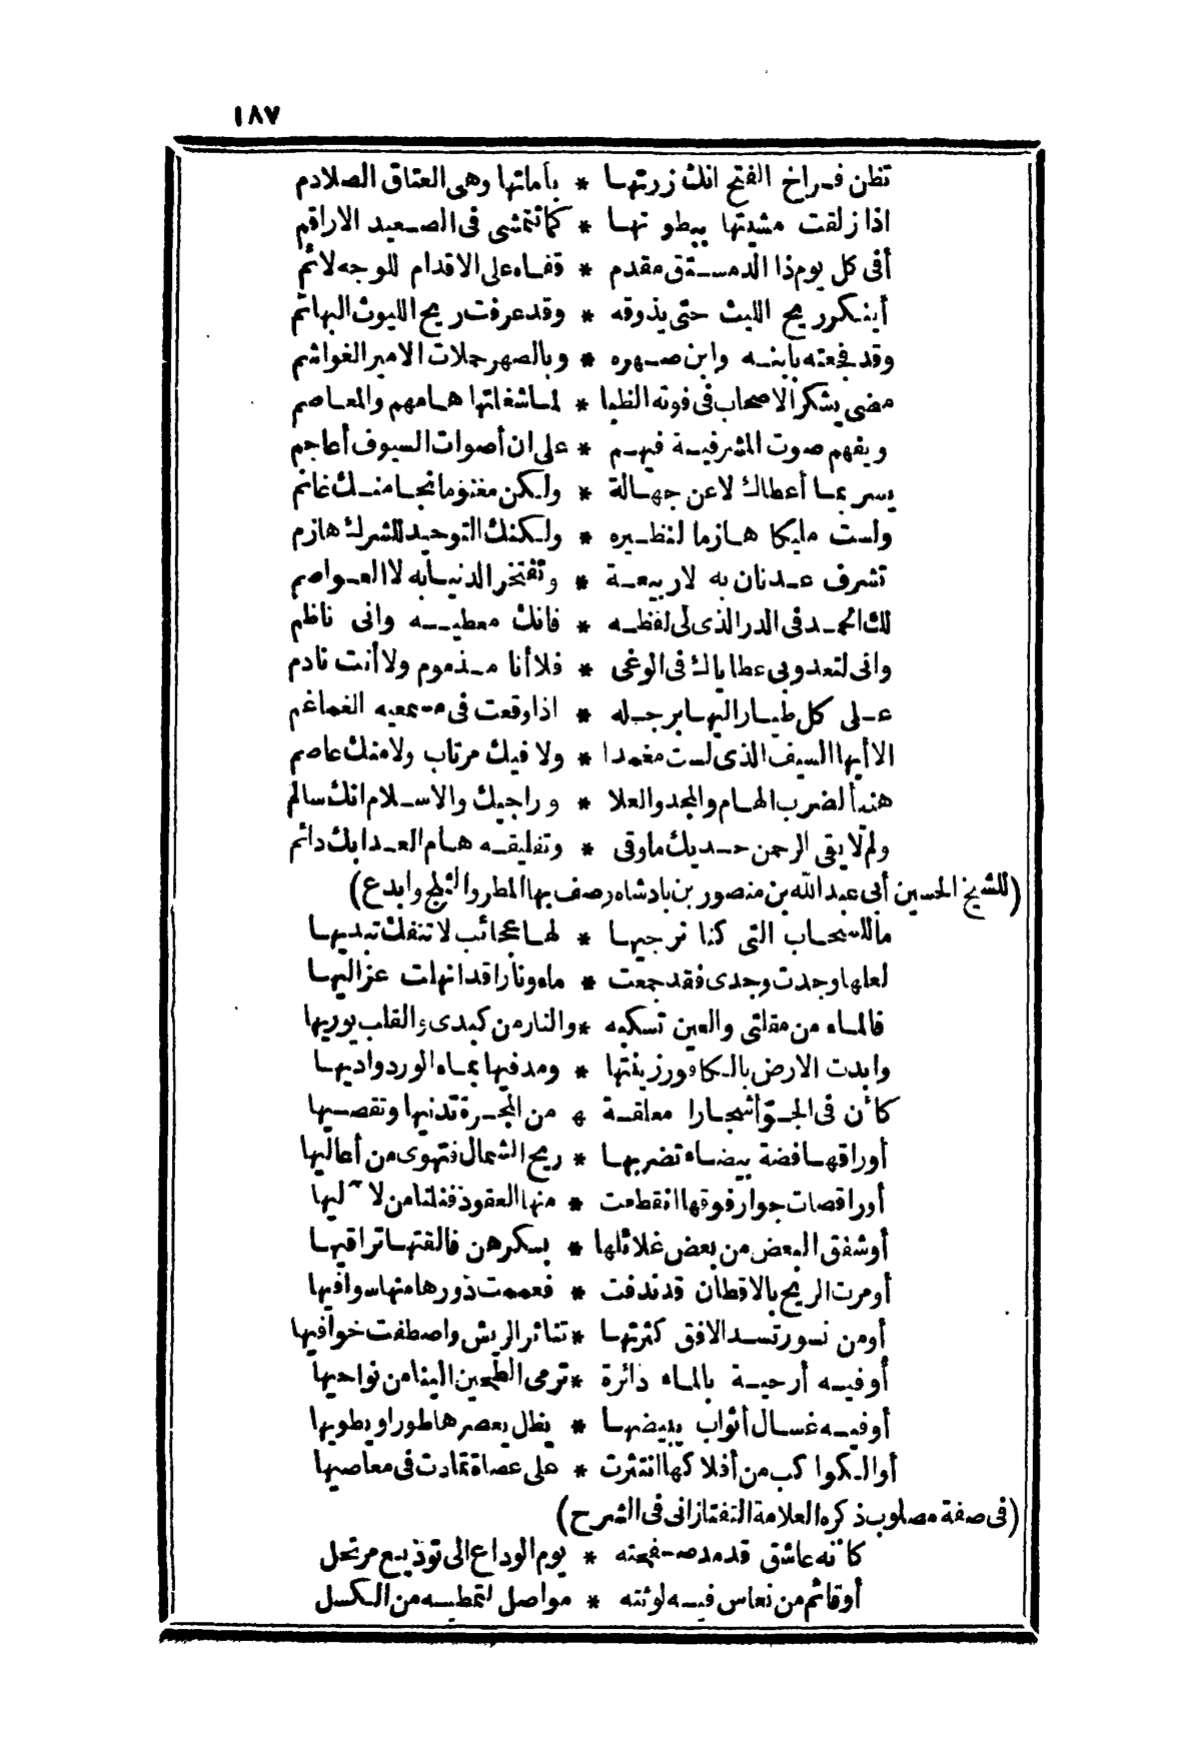 ١٨٧
تظن فراخ الفتح انك زرتها * بأماتها وهى العتاق الصلادم
اذا زلقت مشيتها ببطونها * كما تتمشى فى الصعيد الاراقم
أفى كل يوم ذا الدمستق مقدم * قفاه على الاقدام للوجه لائم
أينكر ريح الليث حتى يذوقه * وقد عرفت ريح الليوث البهائم
وقد فجعته بابنه وابن صهره * وبالصهر حملات الامير الغواشم
مضى يشكر الاصحاب فى فوته الظبا * لما شغلتها هامهم والمعاصم
ويفهم صوت المشرفية فيهم * على ان أصوات السيوف أعاجم
يسر بما أعطاك لا عن جهالة * ولكن مغنوما نجا منك غانم
ولست مليكا هازما لنظيره * ولكنك التوحيد للشرك هازم
تشرف عدنان به لا ربيعة * وتفتخر الدنيا به لا العواصم
لك الحمد فى الدر الذى لى لفظه * فانك معطيه وانى ناظم
وانى لتعدو بى عطاياك فى الوغى * فلا أنا مذموم ولا أنت نادم
على كل طيار اليها برجله * اذا وقعت فى مسمعيه الغماغم
الا أيها السيف الذى لست مغمدا * ولا فيك مرتاب ولا منك عاصم
هنيأ لضرب الهام والمجد والعلا * وراجيك والاسلام انك سالم
ولم لا يقى الرحمن حديك ما وقى * وتفليقه هام العدا بك دائم
(للشيخ الحسين أبى عبد الله بن منصور بن بادشاه رصف بها المطر والثلج وابدع)
ما للسحاب التى كنا نرجيها * لها عجائب لا تنفك تبديها
لعلها وجدت وجدى فقد جمعت * ماء ونارا قد انهلت عزاليها
فالماء من مقلتى والعين تسكبه * والنار من كبدى والقلب يوريها
وابدت الارض بالكافور زينتها * ومد فيها بماء الورد واديها
كأن فى الجو أشجارا معلقة * من المجرة تدنيها وتقصيها
أوراقها فضة بيضاء تضربها * ريح الشمال فتهوى من أعاليها
أو راقصات جوار فوقها انقطعت * منها العقود فنلنا من لآليها
أو شفق البعض من بعض غلائلها * بسكرهن فالقتها تراقيها
أو مرت الريح بالاقطان قد ندفت * فعممت ذورها منها سوافيها
أو من نسور تسد الافق كثرتها * تناثر الريش واصطفت خوافيها
أو فيه أرحية بالماء دائرة * ترمى الطحين الينا من نواحيها
أو فيه غسال أثواب يبيضها * يظل يعصرها طورا ويطويها
أو الكواكب من أفلاكها انتثرت * على عصاة تمادت فى معاصيها
(فى صفة مصلوب ذكره العلامة التفتازانى فى الشرح)
كأنه عاشق قد مد صفحته * يوم الوداع الى توديع مرتحل
أو قائم من نعاس فيه لوثته * مواصل لتمطيه من الكسل